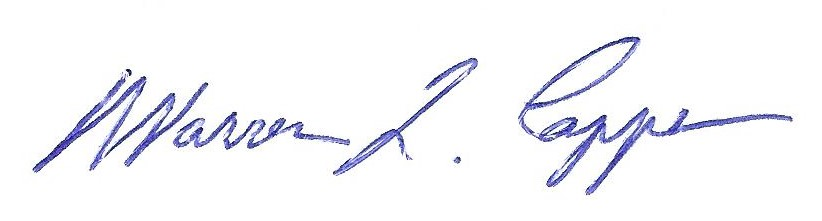 Warren L. Cappe